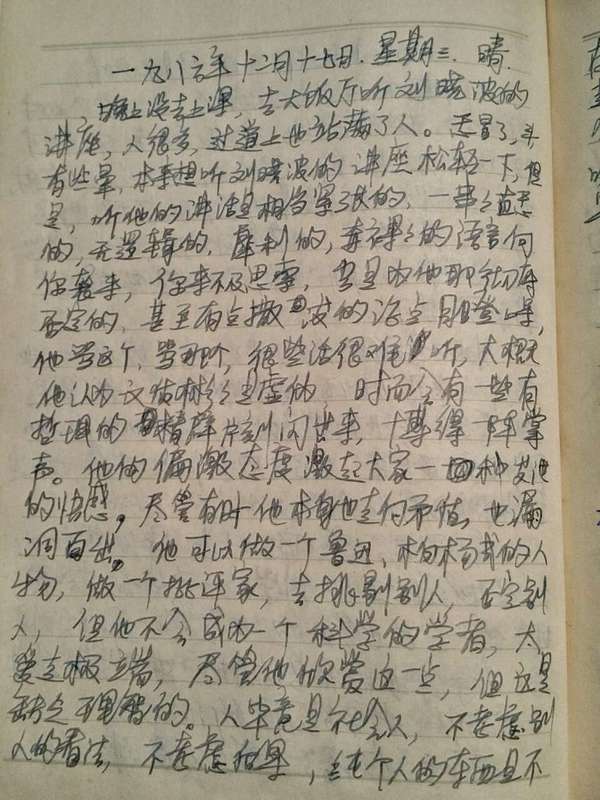 一九八六年十二月十七日. 星期三. 晴.
晚上没去上课, 去大饭厅听刘晓波的
讲座, 人很多, 过道上也站满了人。 感冒了, 头
有些晕, 本来想听刘晓波的讲座松轻一下, 但
是, 听他的讲话是相当紧张的, 一串串
的, 无逻辑的, 犀利的, 赤裸裸的语言向
你袭来, 你来不及思索,
否定的, 甚至有点撒泼的话
他骂这个, 骂那个, 很些话很难听, 大概
他认为文质彬彬是虚伪, 时而会有一些有
哲理的精辟 闪出来, 博得一阵掌
声。 他的偏激态度激起大家一种发泄
的快感。 尽管有时他本身也走向矛盾, 也漏
洞百出。 他可以做一个鲁迅, 柏杨式的人
物, 做一个批评家, 去挑剔别人, 否定别
人, 但他不会成为一个科学的学者, 太
爱走极端, 尽管他欣赏这一点, 但这是
缺点 理智的。 人毕竟是社会人, 不考虑别
人的看法, 不考虑后果, 纯个人的东西是不